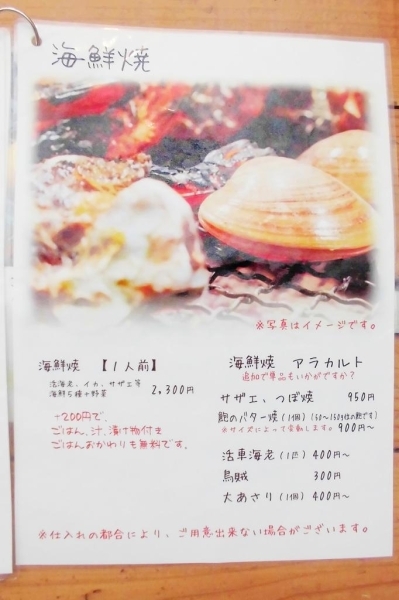 海鮮焼
※写真はイメージです。
海鮮焼 【1人前】
活海老、イカ、サザエ等
海鮮5種+野菜 2,300円
+200円で、
ごはん、汁、漬け物付き
ごはんおかわりも無料です。
海鮮焼 アラカルト
追加で単品もいかがですか?
サザエ、つぼ焼 950円
鮑のバター焼(1個)(120~150g位の鮑です)
※サイズによって変動します。900円~
活車海老(1匹) 400円~
烏賊 300円
大あさり(1個) 400円~
※仕入れの都合により、ご用意出来ない場合がございます。